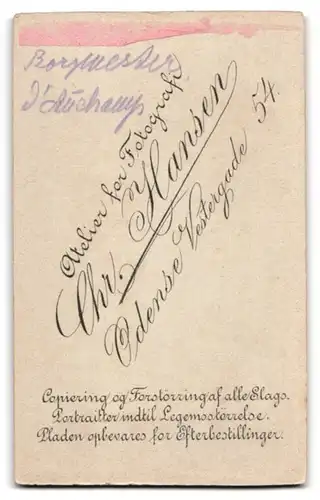 Borgmester
d'Auchamp
Atelier for Fotografi
Chr. Hansen
Odense Vestergade 54.
Copiering og Forstörring af alle Slags.
Portraitter indtil Legemsstörrelse.
Pladen opbevares for Efterbestillinger.